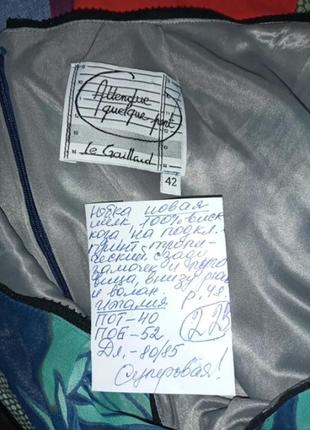 Attendre
quelque part
Le Gaillard
42
Юбка новая
шелк, 100% виск
коза, на подкл.
принт-тропи-
ческий, сзади
замочек и
вища, внизу
и волан. р. 48.
Италия
ПОТ-40
ПОБ-52
Дл,-80/85
Суперовая!